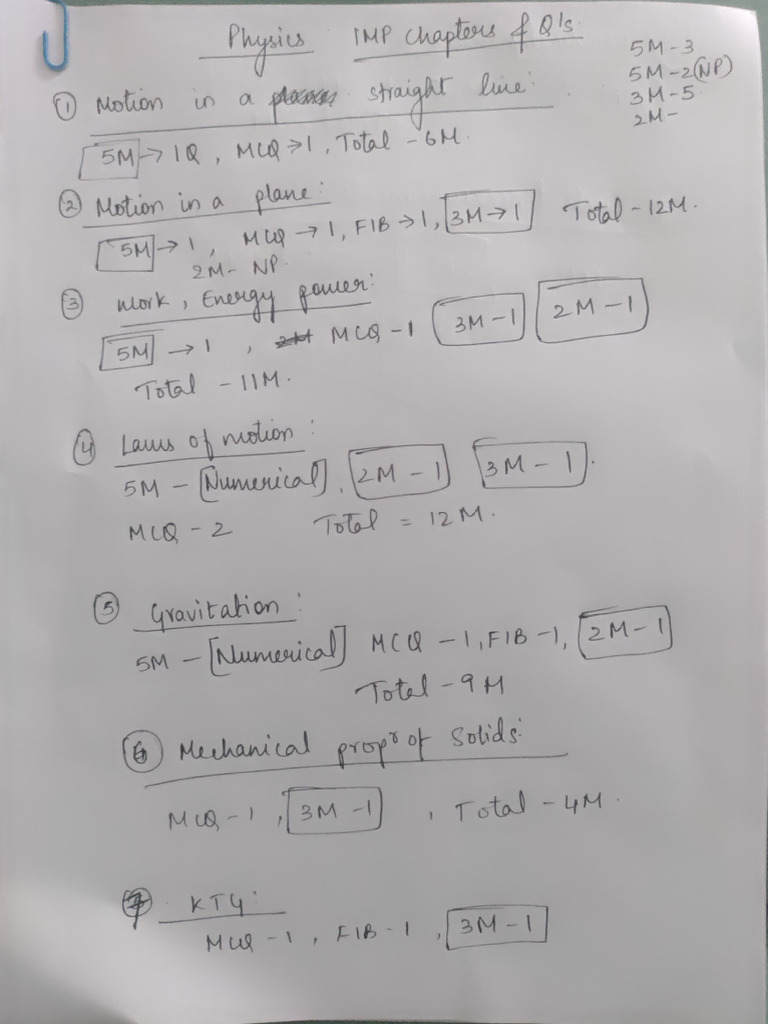 Physics IMP chapters & Q's
5M - 3
5M - 2(NP)
3M - 5
2M -
① Motion in a straight line:
5M → 1Q, MCQ → 1, Total - 6M.
② Motion in a plane:
5M → 1, MCQ → 1, FIB → 1, 3M → 1 Total - 12M.
2M - NP.
③ Work, Energy power:
5M → 1, MCQ - 1 3M - 1 2M - 1
Total - 11M.
④ Laws of motion:
5M - [Numerical], 2M - 1 3M - 1.
MCQ - 2 Total = 12M.
⑤ Gravitation:
5M - [Numerical] MCQ - 1, FIB - 1, 2M - 1
Total - 9M
⑥ Mechanical propr of Solids:
MCQ - 1, 3M - 1, Total - 4M.
⑦ KTG:
MCQ - 1, FIB - 1, 3M - 1